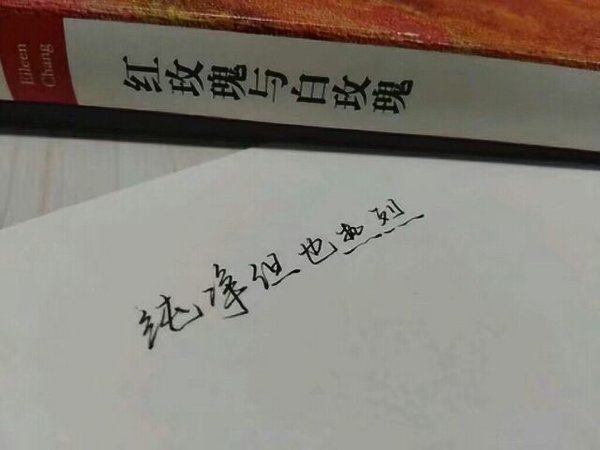 Eileen
Chang
红玫瑰与白玫瑰
纯净但也热烈